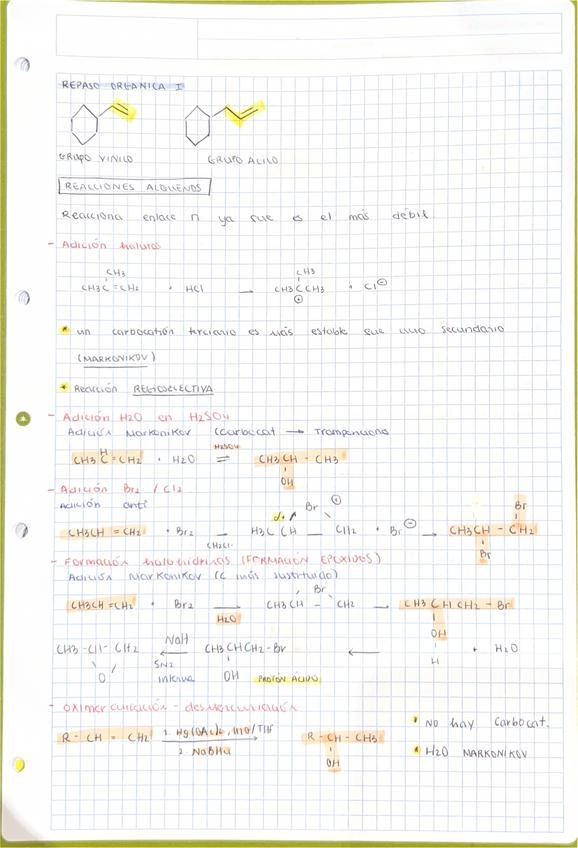 REPASO ORGANICA I
GRUPO VINILO
GRUPO ALILO
REACCIONES ALQUENOS
Reacciona enlace π ya que es el más débil
- Adición haluros
CH3
CH3C=CH2 + HCl → CH3CCH3 + Cl⊖
CH3
⊕
* un carbocatión terciario es más estable que uno secundario
(MARKONIKOV)
* Reacción REGIOSELECTIVA
- Adición H2O en H2SO4
Adición Markonikov (Carbocat →
H
H2SO4
CH3C=CH2 + H2O ⇌ CH3CH-CH3
OH
- Adición Br2 / Cl2
Adición anti
δ+
Br ⊕
Br
CH3CH=CH2 + Br2 → H3CCH - CH2 + Br⊖ → CH3CH - CH2
Br
- Formación halohidrinas (FORMACIÓN EPOXIDOS)
Adición Markonikov (C más sustituido)
Br
CH3CH=CH2 + Br2 → CH3CH - CH2 → CH3CHCH2-Br
H2O
OH
H
+ H2O
CH3-CH-CH2 ← CH3CHCH2-Br ←
NaH
SN2
interna
O
OH PROTON ÁCIDO
- Oximercuriación - desmercuriación
R-CH=CH2 1. Hg(OAc)2, H2O/THF R-CH-CH3
2. NaBH4
OH
* NO hay carbocat.
* H2O MARKONIKOV